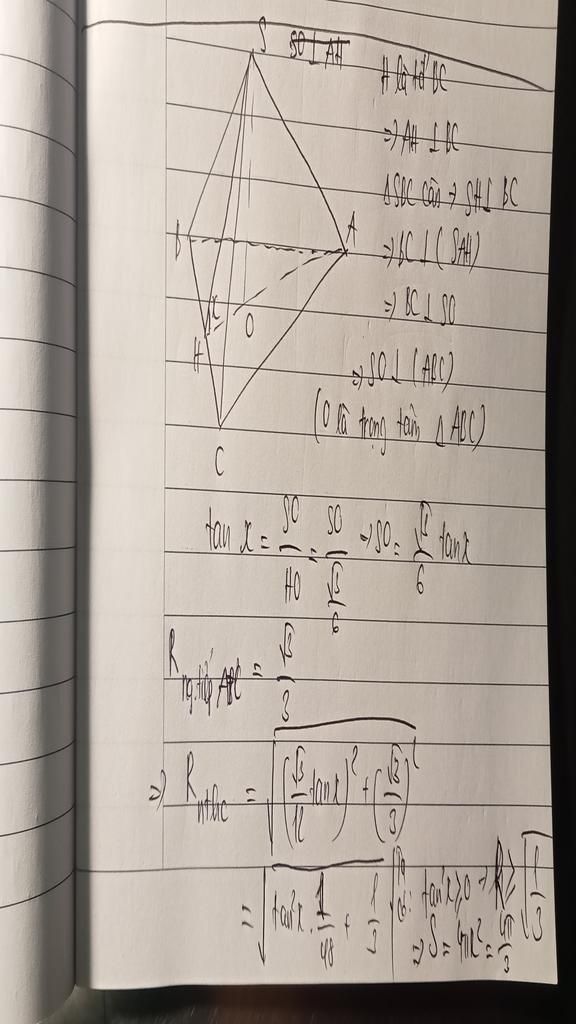 S
SO ⊥ AH
H là tđ BC
⇒ AH ⊥ BC
ΔSBC cân → SH ⊥ BC
⇒ BC ⊥ (SAH)
⇒ BC ⊥ SO
⇒ SO ⊥ (ABC)
(O là trọng tâm Δ ABC)
B
A
x
O
H
C
tan x = SO/HO = SO/(√3/6) → SO = √3/6 tanx
R ng.tiếp ABC = √3/3
⇒ R = √((√3/12 tanx)² + (√3/3)²)
= √(tan²x · 1/48 + 1/3)
tan²x ≥ 0 → R ≥ √(1/3)
⇒ S = 4πR² = 4π/3